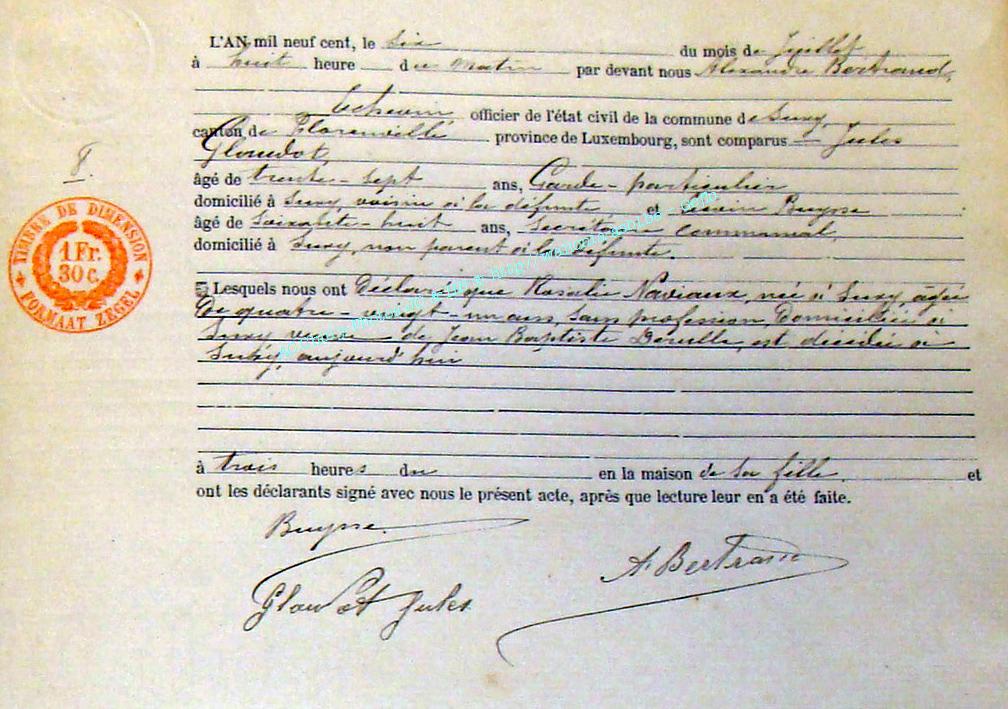 L'AN mil neuf cent, le six du mois de Juillet
à huit heure du matin par devant nous Alexandre Bertrand,
Echevin, officier de l'état civil de la commune de Suxy,
canton de Florenville province de Luxembourg, sont comparus Jules
Gloudot,
âgé de trente-sept ans, Garde-particulier
domicilié à Suxy, voisin à la défunte et Buysse
âgé de soixante-huit ans, Secrétaire communal,
domicilié à Suxy, non parent à la défunte.
Lesquels nous ont Déclaré que Rosalie Naviaux, née à Suxy, âgée
De quatre-vingt-un ans, sans profession, Domiciliée à
Suxy veuve de Jean Baptiste, est décédée à
Suxy, aujourd'hui
à trois heures du en la maison de sa fille. et
ont les déclarants signé avec nous le présent acte, après que lecture leur en a été faite.
Buysse
A. Bertrand
Gloudot Jules
8.
TIMBRE DE DIMENSION
1 Fr.
30 C.
FORMAAT ZEGEL